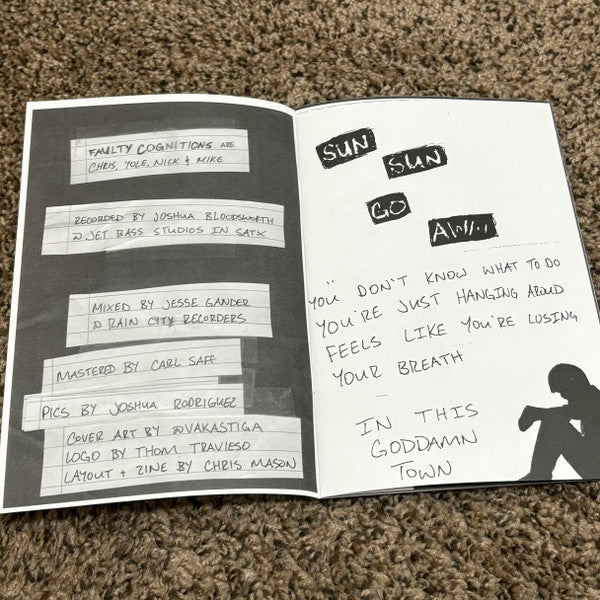 FAULTY COGNITIONS ARE
CHRIS, YOLE, NICK & MIKE
RECORDED BY JOSHUA BLOODSWORTH
@ JET BASS STUDIOS IN SATX
MIXED BY JESSE GANDER
@ RAIN CITY RECORDERS
MASTERED BY CARL SAFF
PICS BY JOSHUA RODRIGUEZ
COVER ART BY @VAKASTIGA
LOGO BY THOM TRAVIESO
LAYOUT + ZINE BY CHRIS MASON
SUN
SUN
GO
YOU DON'T KNOW WHAT TO DO
YOU'RE JUST HANGING AROUD
FEELS LIKE YOU'RE LOSING
YOUR BREATH
IN THIS
GODDAMN
TOWN